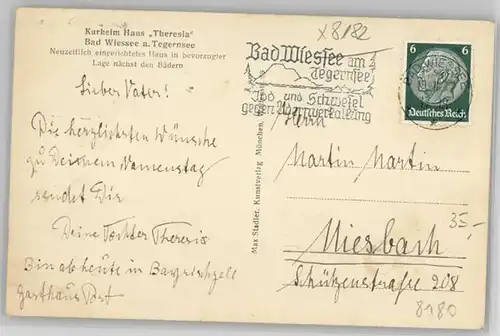 Kurheim Haus „Theresia"
Bad Wiessee a. Tegernsee
Neuzeitlich eingerichtetes Haus in bevorzugter
Lage nächst den Bädern
x8182
Bad Wiessee am
Tegernsee
Jod und Schwefel
gegen Adernverkalkung
6 6
Deutsches Reich
Lieber Vater!
Die herzlichsten Wünsche
zu Deinem Namenstag
sendet Dir
Deine Tochter Theresia
Bin ab heute in Bayrischzell
Gasthaus Post
Max Stadler, Kunstverlag München,
Herrn
Martin Martin
Miesbach
Schützenstraße 208
35,-
8180